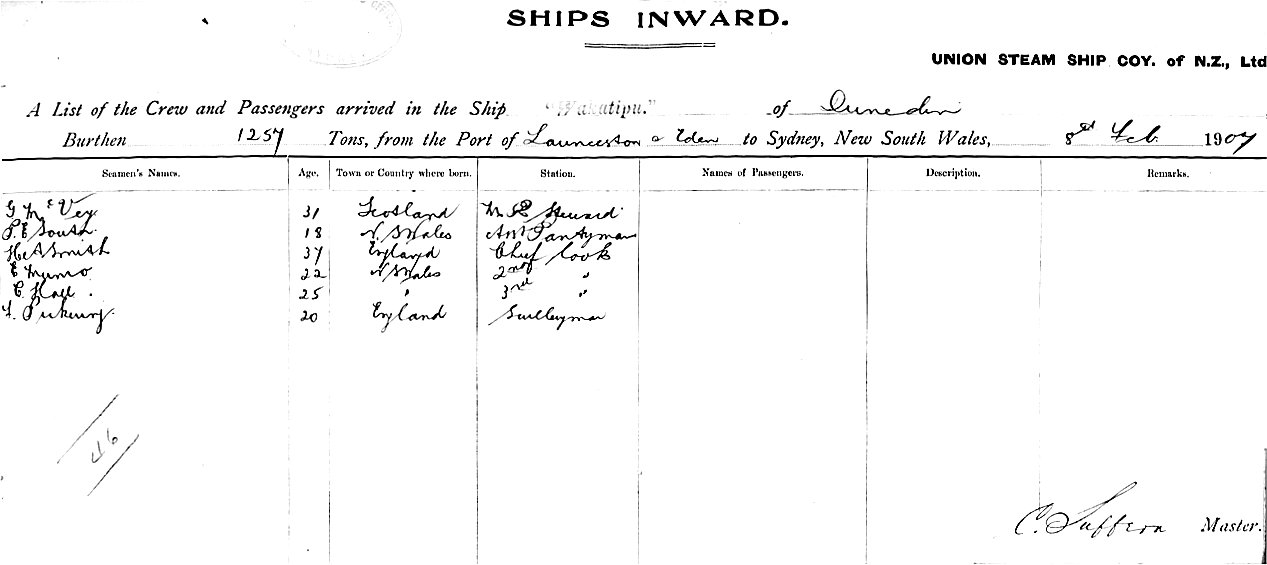 SHIPS INWARD.
UNION STEAM SHIP COY. of N.Z., Ltd
A List of the Crew and Passengers arrived in the Ship "Wakatipu." of Dunedin
Burthen 1257 Tons, from the Port of Launceston & Eden to Sydney, New South Wales, 8 Feb 1907
Seamen's Names. Age. Town or Country where born. Station. Names of Passengers. Description. Remarks.
G McVey 31 Scotland Steward
P. E South 18 N. S Wales Pantryman
H A Smith 37 England Chief Cook
E Munro 22 N S Wales 2nd "
C Hall. 25 " 3rd "
Pickering 20 England Sculleyman
46
C. Suffern Master.